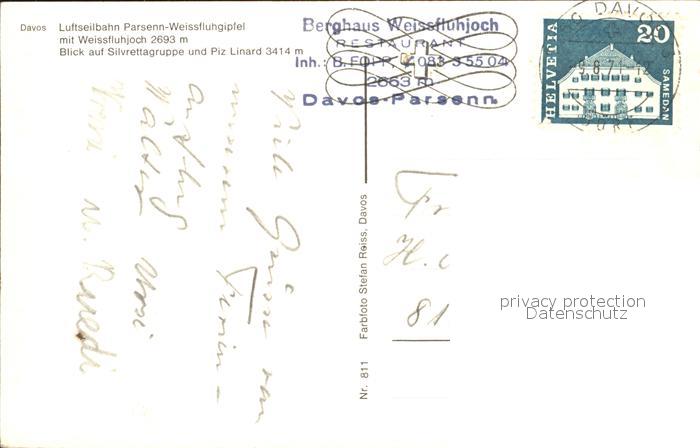 Davos Luftseilbahn Parsenn-Weissfluhgipfel
mit Weissfluhjoch 2693 m
Blick auf Silvrettagruppe und Piz Linard 3414 m
Berghaus Weissfluhjoch
RESTAURANT
Inh.: B. FOPP, 083 3 55 04
2663 m
Davos-Parsenn
DAVOS
HELVETIA
20
SAMEDAN
Viele Grüsse von
unserem
Ausflug
Vreni u. Ruedi
Nr. 811 Farbfoto Stefan Reiss, Davos
H.
81
privacy protection
Datenschutz